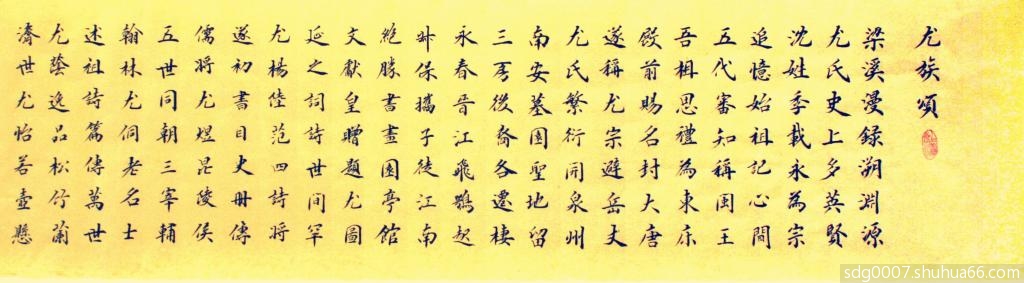 尤族頌
梁溪漫録溯淵源
尤氏史上多英賢
沈姓季載永為宗
追憶始祖記心間
五代審知稱閩王
吾祖思禮為東床
殿前賜名封大唐
遂稱尤宗避岳丈
尤氏繁衍開泉州
南安墓園聖地留
三房後裔各遷棲
永春晉江飛鵝起
叔保攜子徙江南
絕勝書畫園亭館
文獻皇贈題尤圖
延之詞詩世間罕
尤楊陸范四詩將
遂初書目史冊傳
儒將尤煜昆陵侯
五世同朝三宰輔
翰林尤侗老名士
述祖詩篇傳萬世
尤蔭逸品松竹蘭
濟世尤怡若壺懸
sdg0007.shuhua66.com